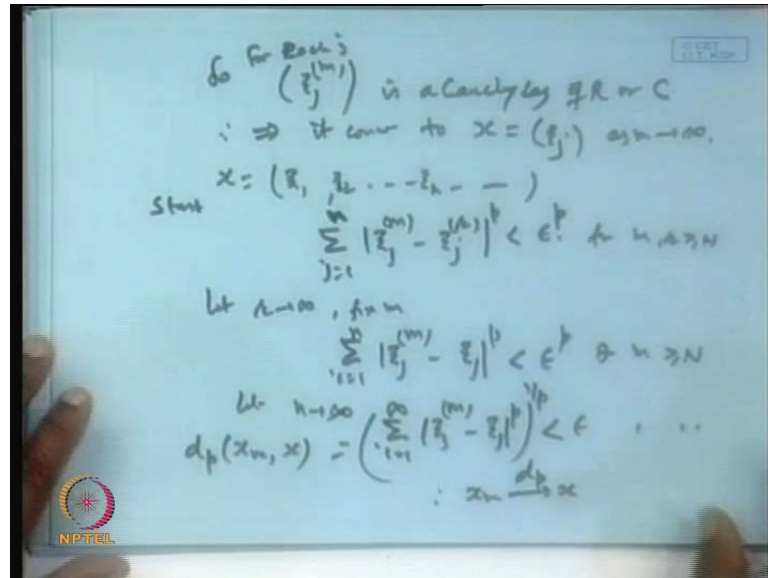 So for each j
(ξ_j^(m)) is a Cauchy seq of R or C
∴ ⇒ it conv to x = (ξ_j) as m→∞.
x = (ξ_1, ξ_2 . . - - ξ_n - —)
Start
∑_{j=1}^{n} |ξ_j^(m) - ξ_j^(r)|^p < ε^p for m, r ≥ N
Let r→∞, fix m
∑_{j=1}^{n} |ξ_j^(m) - ξ_j|^p < ε^p for m ≥ N
Let n→∞
d_p(x_m, x) = (∑_{j=1}^{∞} |ξ_j^(m) - ξ_j|^p)^{1/p} < ε . . .
∴ x_m —d_p→ x
NPTEL